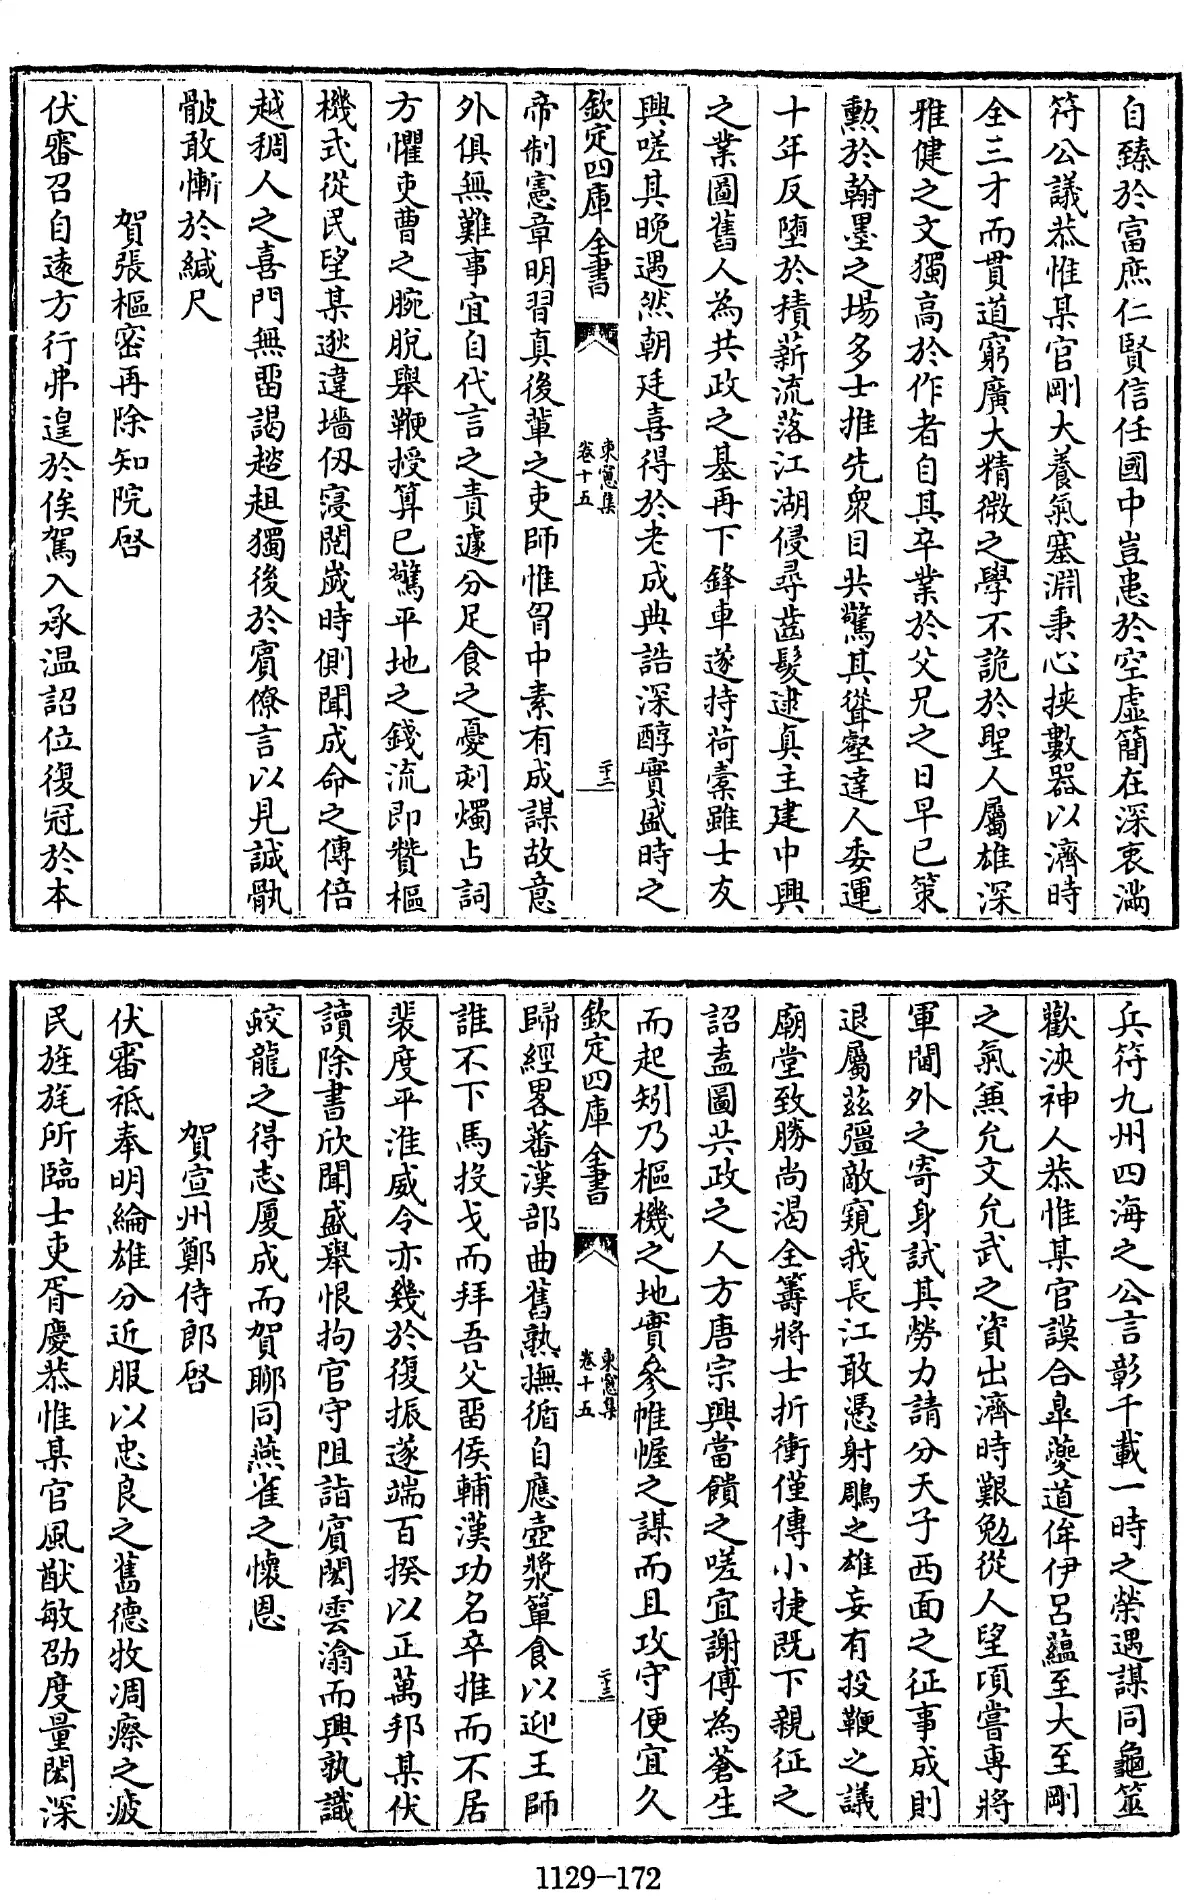 自臻於富庶仁賢信任國中豈患於空虛簡在深衷滿
符公議恭惟某官剛大養氣塞淵秉心挾數器以濟時
全三才而貫道窮廣大精微之學不詭於聖人屬雄深
雅健之文獨高於作者自其卒業於父兄之日早已策
勲於翰墨之場多士推先衆目共驚其聳壑達人委運
十年反墮於積薪流落江湖侵尋齒髮逮真主建中興
之業圖舊人為共政之基再下鋒車遂持荷橐雖士友
興嗟其晚遇然朝廷喜得於老成典誥深醇實盛時之
欽定四庫全書
東窻集
卷十五
二十二
帝制憲章明習真後輩之吏師惟胷中素有成謀故意
外俱無難事宜自代言之責遽分足食之憂刻燭占詞
方懼吏曹之腕脫舉鞭授算已驚平地之錢流即贊樞
機式從民望某逖違墻仭寖閱歲時側聞成命之傳倍
越稠人之喜門無畱謁趑趄獨後於賔僚言以見誠骫
骳敢慚於緘尺
賀張樞密再除知院啓
伏審召自遠方行弗遑於俟駕入承温詔位復冠於本
兵符九州四海之公言彰千載一時之榮遇謀同龜筮
歡浹神人恭惟某官謨合臯夔道侔伊呂蘊至大至剛
之氣兼允文允武之資出濟時艱勉從人望頃嘗專將
軍閫外之寄身試其勞力請分天子西面之征事成則
退屬茲彊敵窺我長江敢憑射鵰之雄妄有投鞭之議
廟堂致勝尚渴全籌將士折衝僅傳小捷既下親征之
詔盍圖共政之人方唐宗興當饋之嗟宜謝傅為蒼生
而起矧乃樞機之地實參帷幄之謀而且攻守便宜久
欽定四庫全書
東窻集
卷十五
二十三
歸經畧蕃漢部曲舊熟撫循自應壺漿簞食以迎王師
誰不下馬投戈而拜吾父畱侯輔漢功名卒推而不居
裴度平淮威令亦幾於復振遂端百揆以正萬邦某伏
讀除書欣聞盛舉恨拘官守阻詣賔閎雲滃而興孰識
蛟龍之得志厦成而賀聊同燕雀之懷恩
賀宣州鄭侍郎啓
伏審祇奉明綸雄分近服以忠良之舊德牧凋瘵之疲
民旌旄所臨士吏胥慶恭惟某官風猷敏劭度量閎深
1129-172